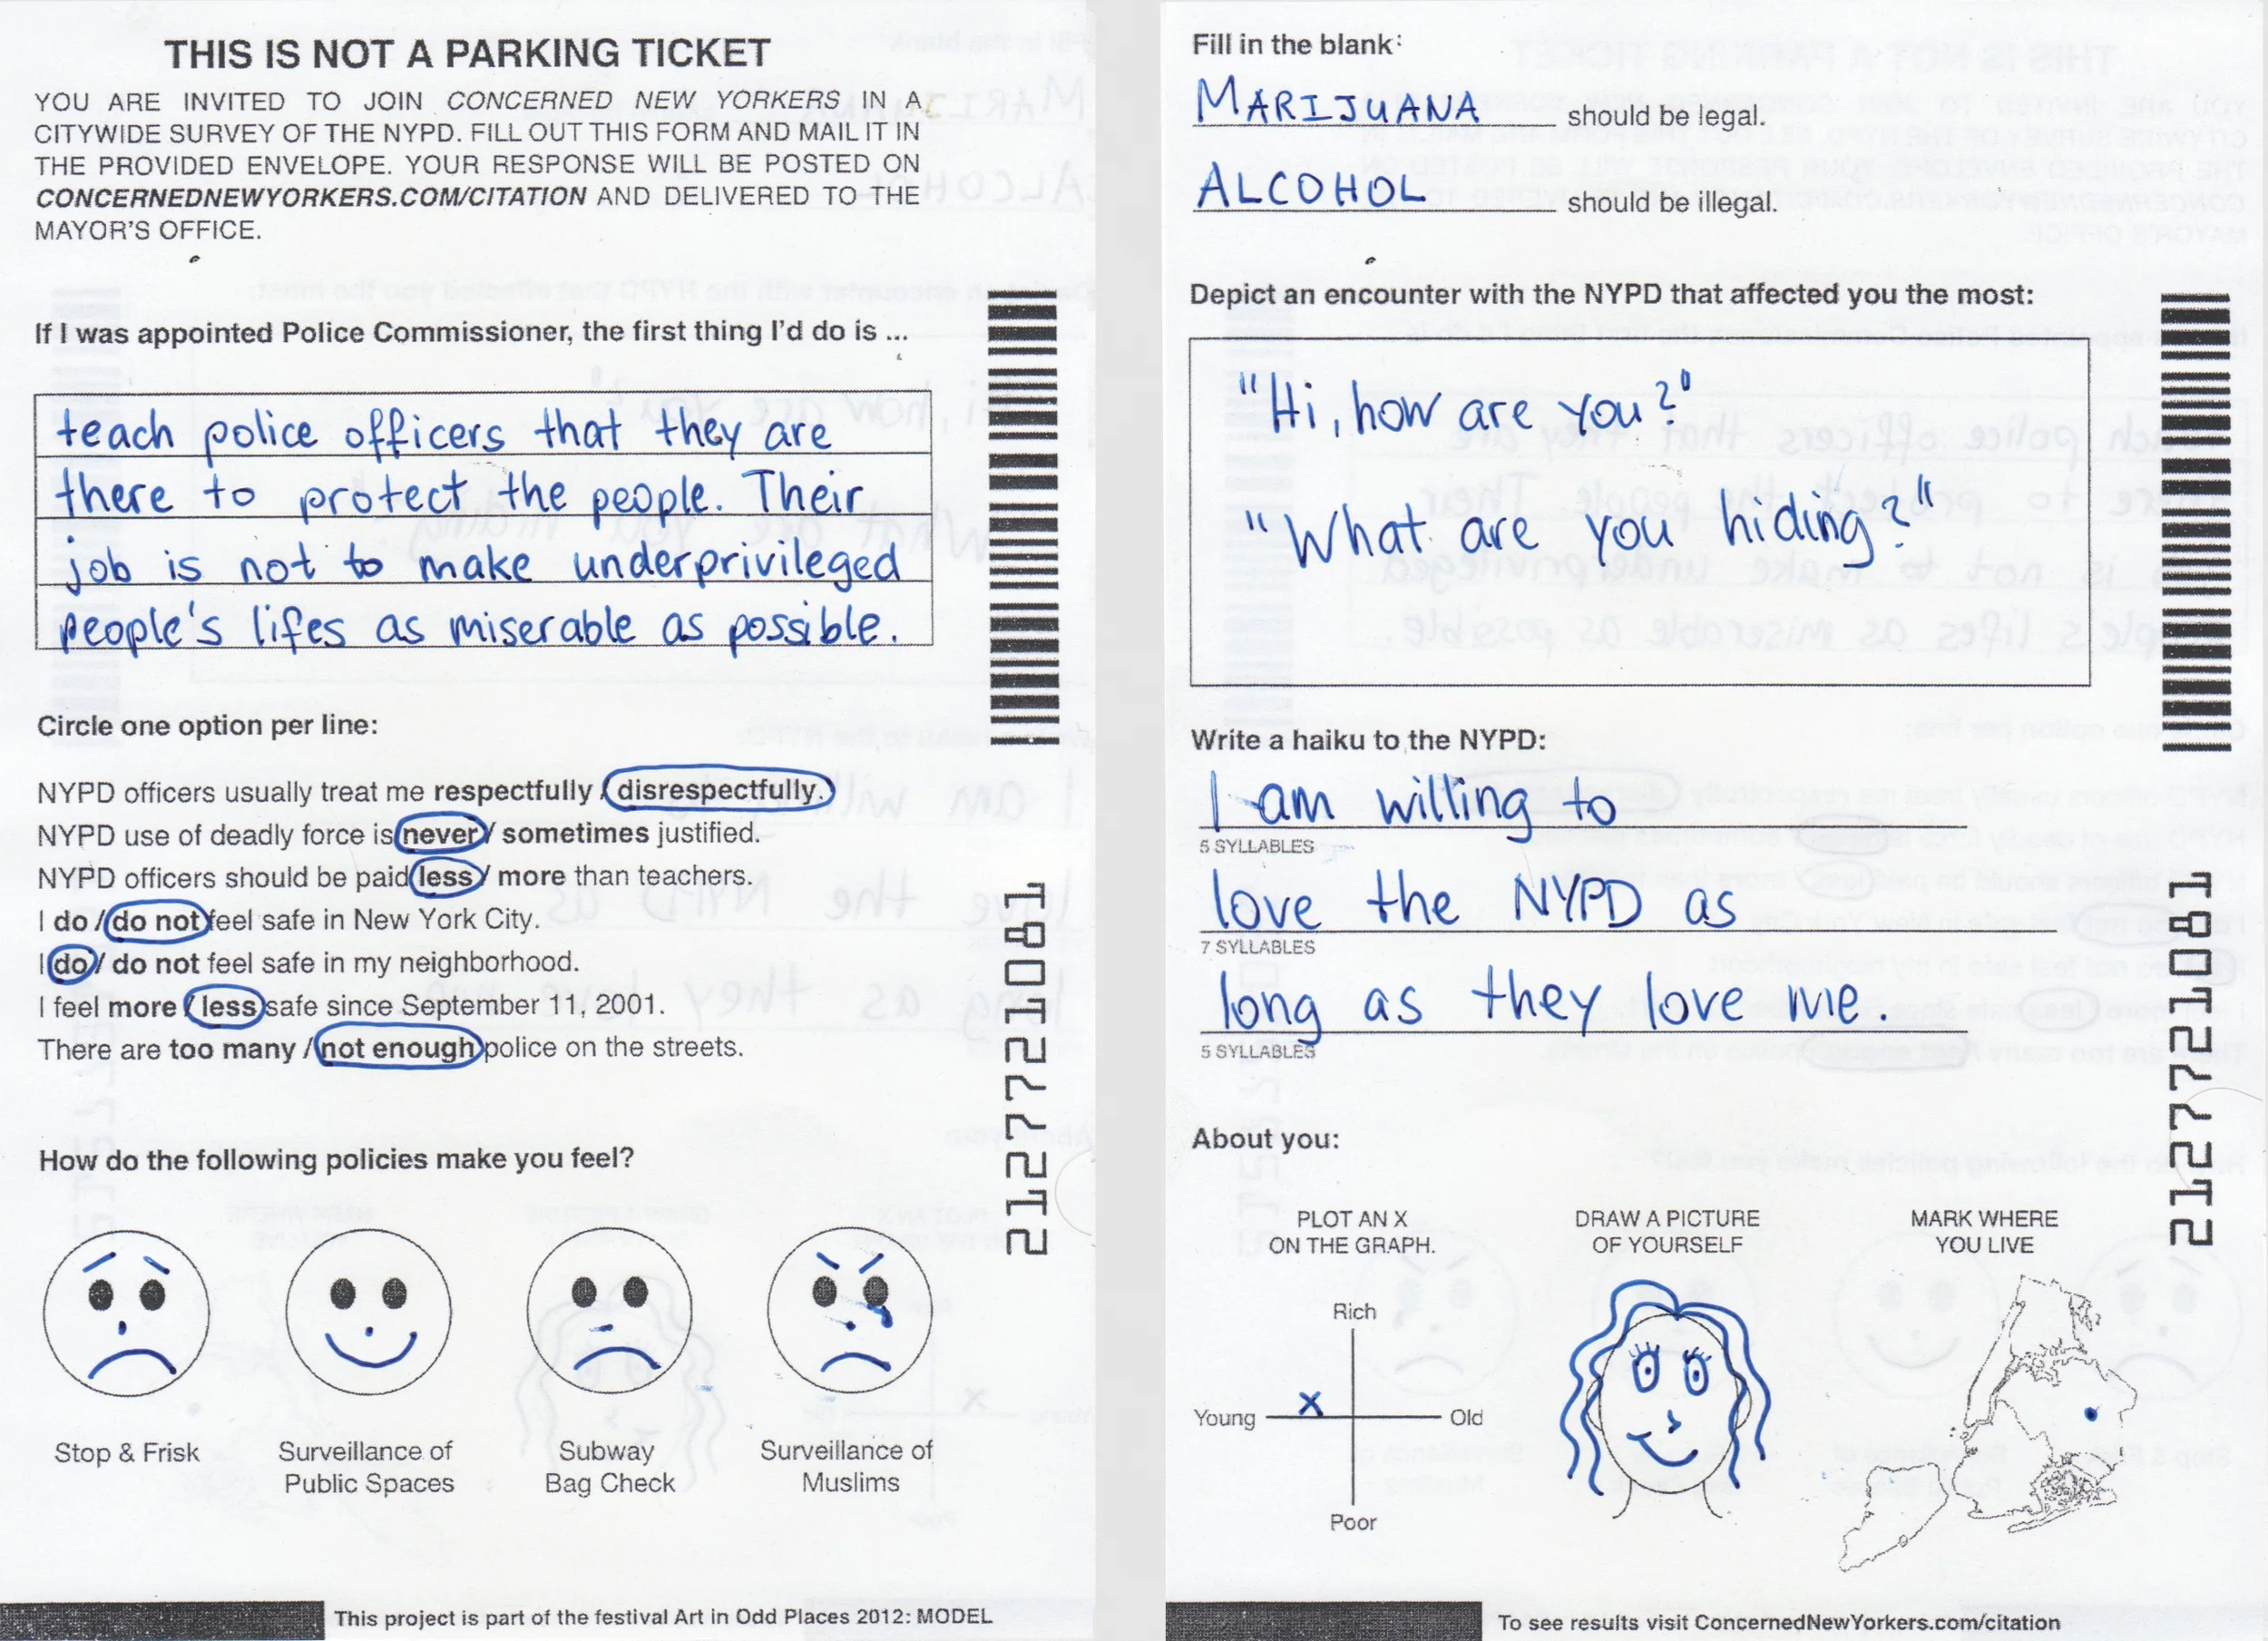 THIS IS NOT A PARKING TICKET
YOU ARE INVITED TO JOIN CONCERNED NEW YORKERS IN A
CITYWIDE SURVEY OF THE NYPD. FILL OUT THIS FORM AND MAIL IT IN
THE PROVIDED ENVELOPE. YOUR RESPONSE WILL BE POSTED ON
CONCERNEDNEWYORKERS.COM/CITATION AND DELIVERED TO THE
MAYOR'S OFFICE.
If I was appointed Police Commissioner, the first thing I'd do is ...
teach police officers that they are
there to protect the people. Their
job is not to make underprivileged
people's lifes as miserable as possible.
Circle one option per line:
NYPD officers usually treat me respectfully / disrespectfully.
NYPD use of deadly force is never / sometimes justified.
NYPD officers should be paid less / more than teachers.
I do / do not feel safe in New York City.
I do / do not feel safe in my neighborhood.
I feel more / less safe since September 11, 2001.
There are too many / not enough police on the streets.
2127721081
How do the following policies make you feel?
Stop & Frisk
Surveillance of
Public Spaces
Subway
Bag Check
Surveillance of
Muslims
This project is part of the festival Art in Odd Places 2012: MODEL
Fill in the blank:
MARIJUANA should be legal.
ALCOHOL should be illegal.
Depict an encounter with the NYPD that affected you the most:
"Hi, how are you?"
"What are you hiding?"
Write a haiku to the NYPD:
I am willing to
5 SYLLABLES
love the NYPD as
7 SYLLABLES
long as they love me.
5 SYLLABLES
2127721081
About you:
PLOT AN X
ON THE GRAPH.
Rich
Young
X
Old
Poor
DRAW A PICTURE
OF YOURSELF
MARK WHERE
YOU LIVE
To see results visit ConcernedNewYorkers.com/citation